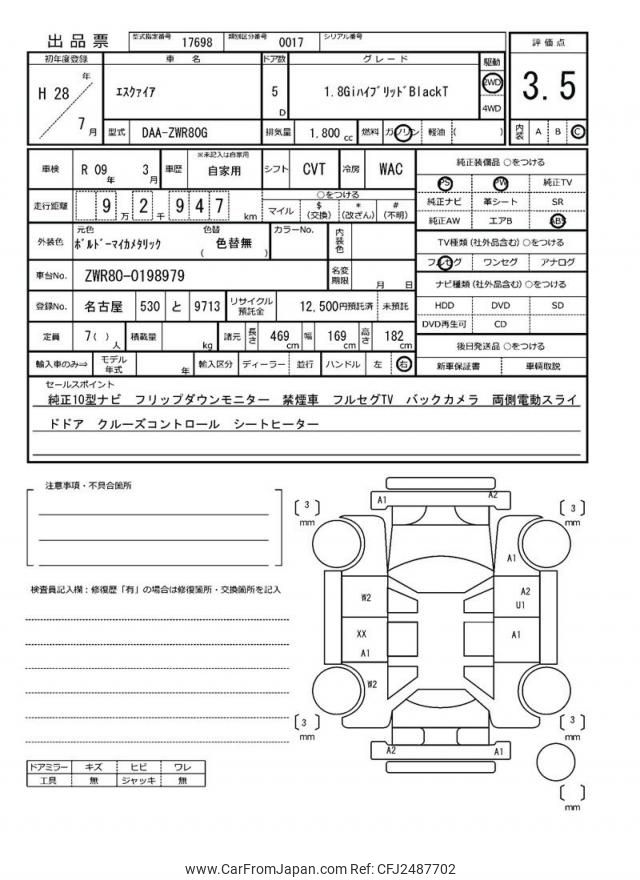 出品票
型式指定番号 17698 類別区分番号 0017 シリアル番号
初年度登録 車 名 ドア数 グレード 駆動 評価点
H 28 年 7 月
エスクァイア 5 D 1.8GiハイブリッドBlackT 2WD 4WD
3.5
型式 DAA-ZWR80G 排気量 1,800 cc 燃料 ガソリン 軽油 ( )
内装 A B C
車検 R 09 年 3 月 車歴 ※未記入は自家用 自家用 シフト CVT 冷房 WAC
純正装備品 ○をつける
PS PW 純正TV
純正ナビ 革シート SR
純正AW エアB ABS
走行距離 9 万 2 千 9 4 7 km
○をつける
マイル $ (交換) * (改ざん) # (不明)
外装色 元色 ボルドーマイカメタリック 色替 ( 色替無 ) カラーNo. 内装色
TV種類 (社外品含む) ○をつける
フルセグ ワンセグ アナログ
車台No. ZWR80-0198979 名変期限 月 日
ナビ種類 (社外品含む) ○をつける
HDD DVD SD
DVD再生可 CD
登録No. 名古屋 530 と 9713 リサイクル預託金 12,500円預託済 未預託
定員 7( ) 人 積載量 kg 諸元 長さ 469 cm 幅 169 cm 高さ 182 cm
後日発送品 ○をつける
新車保証書 車輌取説
輸入車のみ⇒ モデル年式 年 輸入区分 ディーラー 並行 ハンドル 左 右
セールスポイント
純正10型ナビ フリップダウンモニター 禁煙車 フルセグTV バックカメラ 両側電動スライ
ドドア クルーズコントロール シートヒーター
注意事項・不具合箇所
検査員記入欄：修復歴「有」の場合は修復箇所・交換箇所を記入
A1 A2
3 mm
3 mm
A1
W2
A2
U1
XX
A1
A1
W2
3 mm
3 mm
A2 A1
mm
ドアミラー キズ ヒビ ワレ
工具 無 ジャッキ 無
www.CarFromJapan.com Ref: CFJ2487702